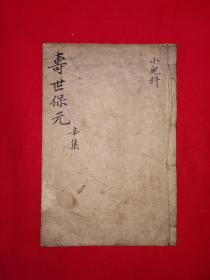 小兒科
壽世保元
辛集